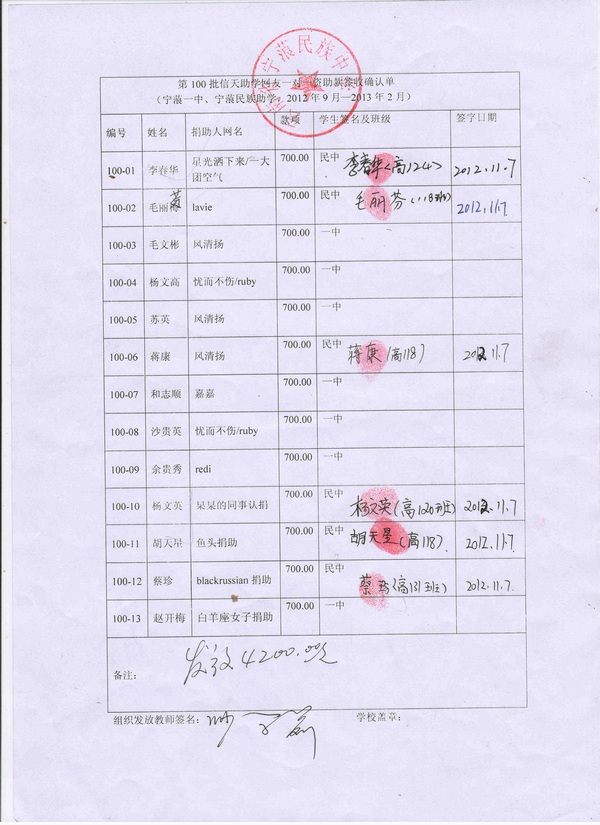 宁蒗民族中
第 100 批信天助学网友一对一资助款签收确认单
（宁蒗一中、宁蒗民族助学：2012 年 9 月—2013 年 2 月）
编号 姓名 捐助人网名 款项 学生签名及班级 签字日期
100-01 李春华 星光洒下来/一大团空气 700.00 民中 李春华(高124) 2012.11.7
100-02 毛丽 lavie 700.00 民中 毛丽芬(118班) 2012.11.7.
100-03 毛文彬 风清扬 700.00 一中
100-04 杨文高 忧而不伤/ruby 700.00 一中
100-05 苏英 风清扬 700.00 一中
100-06 蒋康 风清扬 700.00 民中 蒋康(高118) 2012.11.7
100-07 和志顺 嘉嘉 700.00 一中
100-08 沙贵英 忧而不伤/ruby 700.00 一中
100-09 余贵秀 redi 700.00 一中
100-10 杨文英 呆呆的同事认捐 700.00 民中 杨文英(高120班) 2012.11.7
100-11 胡天星 鱼头捐助 700.00 民中 胡天星(高118) 2012.11.7
100-12 蔡珍 blackrussian 捐助 700.00 民中 蔡珍(高131班) 2012.11.7.
100-13 赵开梅 白羊座女子捐助 700.00 一中
备注： 发放4200.00元
组织发放教师签名： 学校盖章：